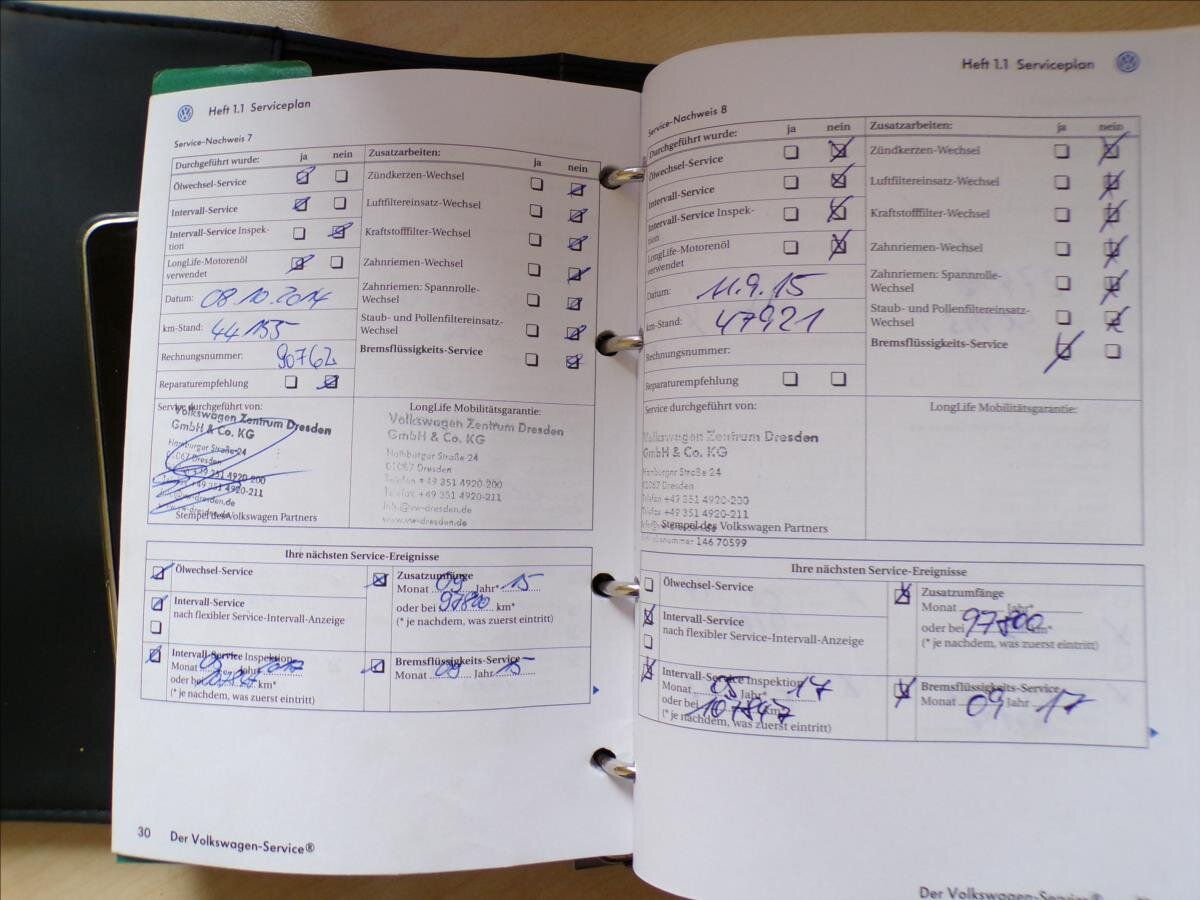 Heft 1.1 Serviceplan
Service-Nachweis 7
Durchgeführt wurde: ja nein
Ölwechsel-Service
Intervall-Service
Intervall-Service Inspek-
tion
LongLife-Motorenöl
verwendet
Datum: 08.10.2014
km-Stand: 44155
Rechnungsnummer: 90762
Reparaturempfehlung
Zusatzarbeiten: ja nein
Zündkerzen-Wechsel
Luftfiltereinsatz-Wechsel
Kraftstofffilter-Wechsel
Zahnriemen-Wechsel
Zahnriemen: Spannrolle-
Wechsel
Staub- und Pollenfiltereinsatz-
Wechsel
Bremsflüssigkeits-Service
Service durchgeführt von:
Volkswagen Zentrum Dresden
GmbH & Co. KG
Hamburger Straße 24
01067 Dresden
+49 351 4920-200
+49 351 4920-211
info@vw-dresden.de
www.vw-dresden.de
Stempel des Volkswagen Partners
LongLife Mobilitätsgarantie:
Volkswagen Zentrum Dresden
GmbH & Co. KG
Hamburger Straße 24
01067 Dresden
Telefon +49 351 4920-200
Telefax +49 351 4920-211
info@vw-dresden.de
www.vw-dresden.de
Ihre nächsten Service-Ereignisse
Ölwechsel-Service
Intervall-Service
nach flexibler Service-Intervall-Anzeige
Intervall-Service Inspektion
Monat Jahr
oder bei km*
(* je nachdem, was zuerst eintritt)
Zusatzumfänge
Monat 09 Jahr* 15
oder bei 97800 km*
(* je nachdem, was zuerst eintritt)
Bremsflüssigkeits-Service
Monat 09 Jahr 15
30 Der Volkswagen-Service®
Heft 1.1 Serviceplan
Service-Nachweis 8
Durchgeführt wurde: ja nein
Ölwechsel-Service
Intervall-Service
Intervall-Service Inspek-
tion
LongLife-Motorenöl
verwendet
Datum: 11.9.15
km-Stand: 47921
Rechnungsnummer:
Reparaturempfehlung
Zusatzarbeiten: ja nein
Zündkerzen-Wechsel
Luftfiltereinsatz-Wechsel
Kraftstofffilter-Wechsel
Zahnriemen-Wechsel
Zahnriemen: Spannrolle-
Wechsel
Staub- und Pollenfiltereinsatz-
Wechsel
Bremsflüssigkeits-Service
Service durchgeführt von:
Volkswagen Zentrum Dresden
GmbH & Co. KG
Hamburger Straße 24
01067 Dresden
Telefon +49 351 4920-200
Telefax +49 351 4920-211
Stempel des Volkswagen Partners
146 70599
LongLife Mobilitätsgarantie:
Ihre nächsten Service-Ereignisse
Ölwechsel-Service
Intervall-Service
nach flexibler Service-Intervall-Anzeige
Intervall-Service Inspektion
Monat 09 Jahr* 17
oder bei 107847 km*
(* je nachdem, was zuerst eintritt)
Zusatzumfänge
Monat Jahr*
oder bei 97800 km*
(* je nachdem, was zuerst eintritt)
Bremsflüssigkeits-Service
Monat 09 Jahr 17
Der Volkswagen-Service®